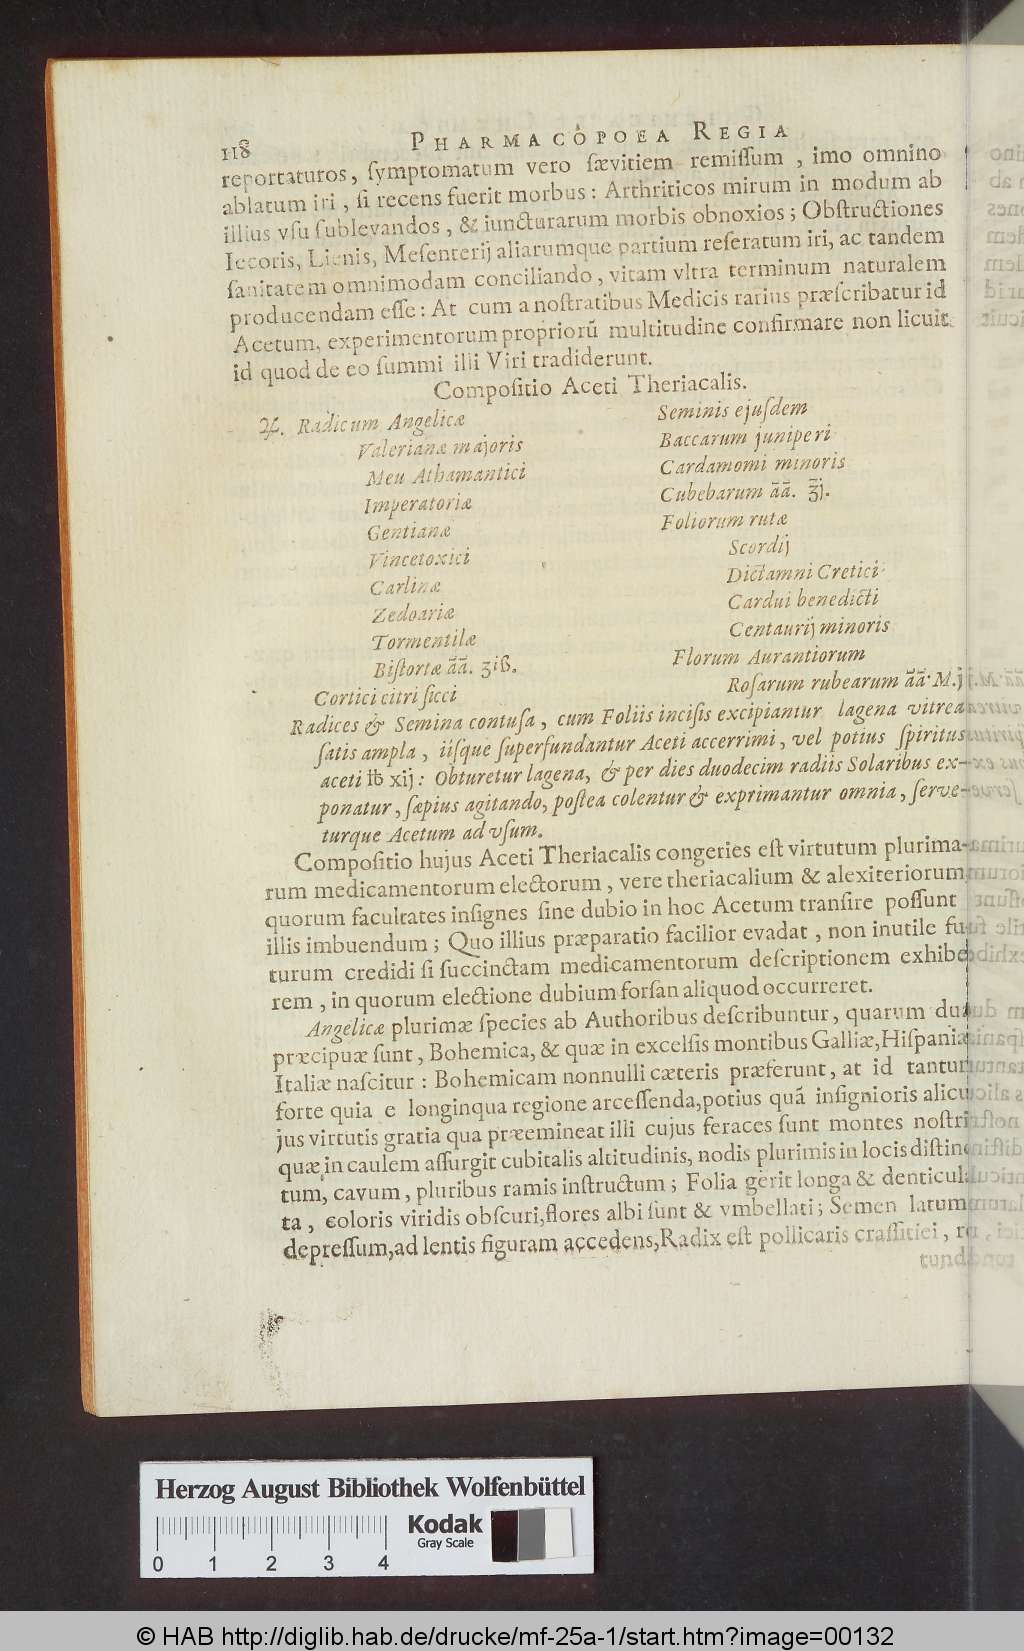 118 PHARMACOPOEA REGIA
reportaturos, ſymptomatum vero ſævitiem remiſſum, imo omnino
ablatum iri, ſi recens fuerit morbus: Arthriticos mirum in modum ab
illius vſu ſublevandos, & iuncturarum morbis obnoxios; Obſtructiones
Iecoris, Lienis, Meſenterij aliarumque partium reſeratum iri, ac tandem
ſanitatem omnimodam conciliando, vitam vltra terminum naturalem
producendam eſſe: At cum a noſtratibus Medicis rarius præſcribatur id
Acetum, experimentorum propriorū multitudine confirmare non licuit
id quod de eo ſummi illi Viri tradiderunt.
Compoſitio Aceti Theriacalis.
♃. Radicum Angelicæ
Valerianæ majoris
Meu Athamantici
Imperatoriæ
Gentianæ
Vincetoxici
Carlinæ
Zedoariæ
Tormentilæ
Biſtortæ āā. ʒiß.
Cortici citri ſicci
Seminis ejuſdem
Baccarum juniperi
Cardamomi minoris
Cubebarum āā. ℥j.
Foliorum rutæ
Scordij
Dictamni Cretici
Cardui benedicti
Centaurij minoris
Florum Aurantiorum
Roſarum rubearum āā. M. j
Radices & Semina contuſa, cum Foliis inciſis excipiantur lagena vitrea
ſatis ampla, iiſque ſuperfundantur Aceti accerrimi, vel potius ſpiritus
aceti ℔ xij: Obturetur lagena, & per dies duodecim radiis Solaribus ex-
ponatur, ſæpius agitando, poſtea colentur & exprimantur omnia, ſerve-
turque Acetum ad vſum.
Compoſitio hujus Aceti Theriacalis congeries eſt virtutum plurima-
rum medicamentorum electorum, vere theriacalium & alexiteriorum,
quorum facultates inſignes ſine dubio in hoc Acetum tranſire poſſunt
illis imbuendum; Quo illius præparatio facilior evadat, non inutile fu-
turum credidi ſi ſuccinctam medicamentorum deſcriptionem exhibe-
rem, in quorum electione dubium forſan aliquod occurreret.
Angelicæ plurimæ ſpecies ab Authoribus deſcribuntur, quarum duæ
præcipuæ ſunt, Bohemica, & quæ in excelſis montibus Galliæ, Hiſpaniæ
Italiæ naſcitur: Bohemicam nonnulli cæteris præferunt, at id tantum
forte quia e longinqua regione arceſſenda, potius quā inſignioris alicu
jus virtutis gratia qua præemineat illi cujus feraces ſunt montes noſtri
quæ in caulem aſſurgit cubitalis altitudinis, nodis plurimis in locis diſtinc
tum, cavum, pluribus ramis inſtructum; Folia gerit longa & denticula
ta, coloris viridis obſcuri, flores albi ſunt & vmbellati; Semen latum
depreſſum, ad lentis figuram accedens, Radix eſt pollicaris craſſitiei, ro
tund
Herzog August Bibliothek Wolfenbüttel
Kodak
Gray Scale
0 1 2 3 4
© HAB http://diglib.hab.de/drucke/mf-25a-1/start.htm?image=00132